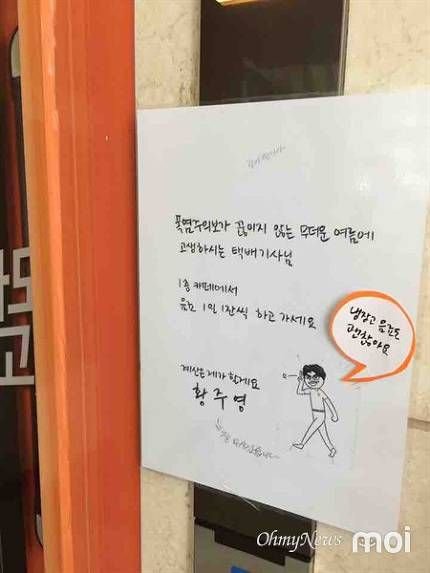 폭염주의보가 끊이지 않는 무더운 여름에
고생하시는 택배기사님
1층 카페에서
음료 1일 1잔씩 하고 가세요
냉장고 음료도
괜찮아요
계산은 제가 할게요
황주영
OhmyNews
moi